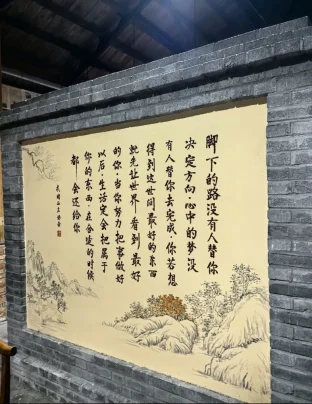 脚下的路没有人替你
决定方向·心中的梦没
有人替你去完成·你若想
得到这世间最好的东西
就先让世界看到最好
的你·当你努力把事做好
以后·生活定会把属于
你的东西·在合适的时候
都会还给你